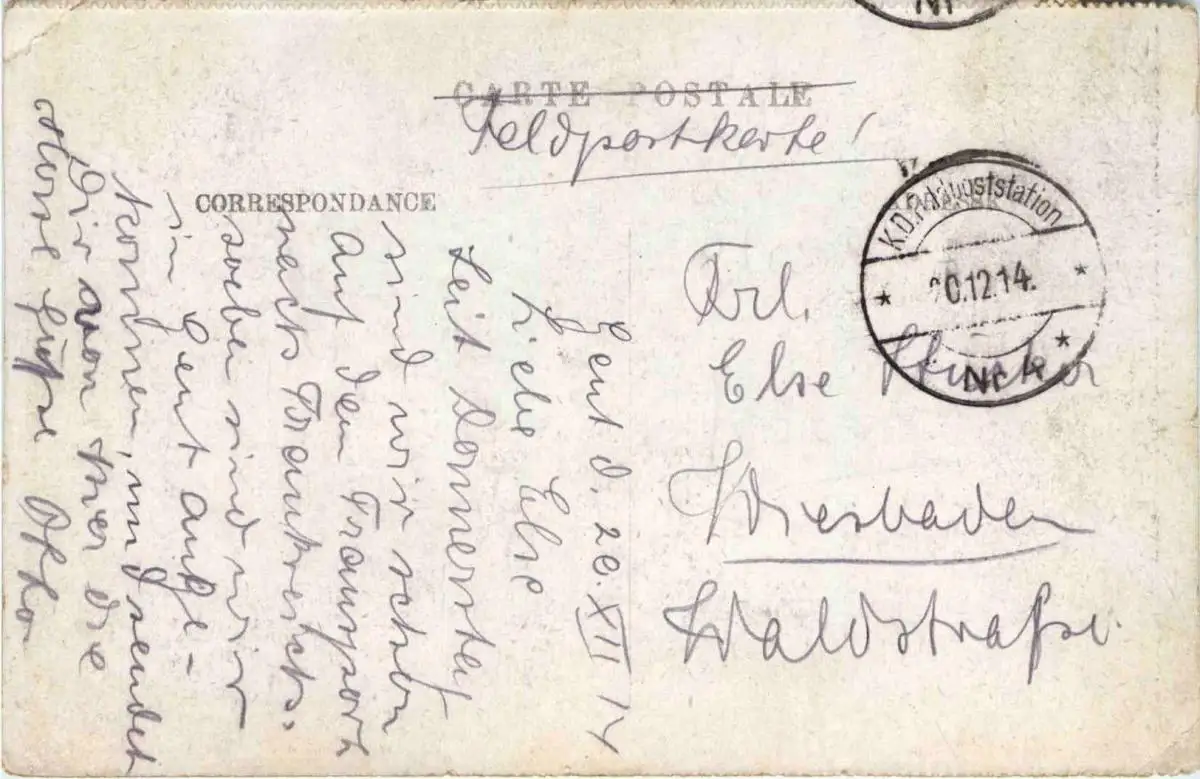 CARTE POSTALE
Feldpostkarte!
CORRESPONDANCE
K.D. Feldpoststation
20.12.14.
Nr 4
Nr
Frl.
Else
Wiesbaden
Waldstraße.
Gent d. 20. XII 14
Liebe Else
Seit Donnerstag
sind wir schon
auf dem Transport
nach Frankreich.
soeben sind wir
in Gent ange-
kommen, und sendet
Dir von hier die
Grüße Otto